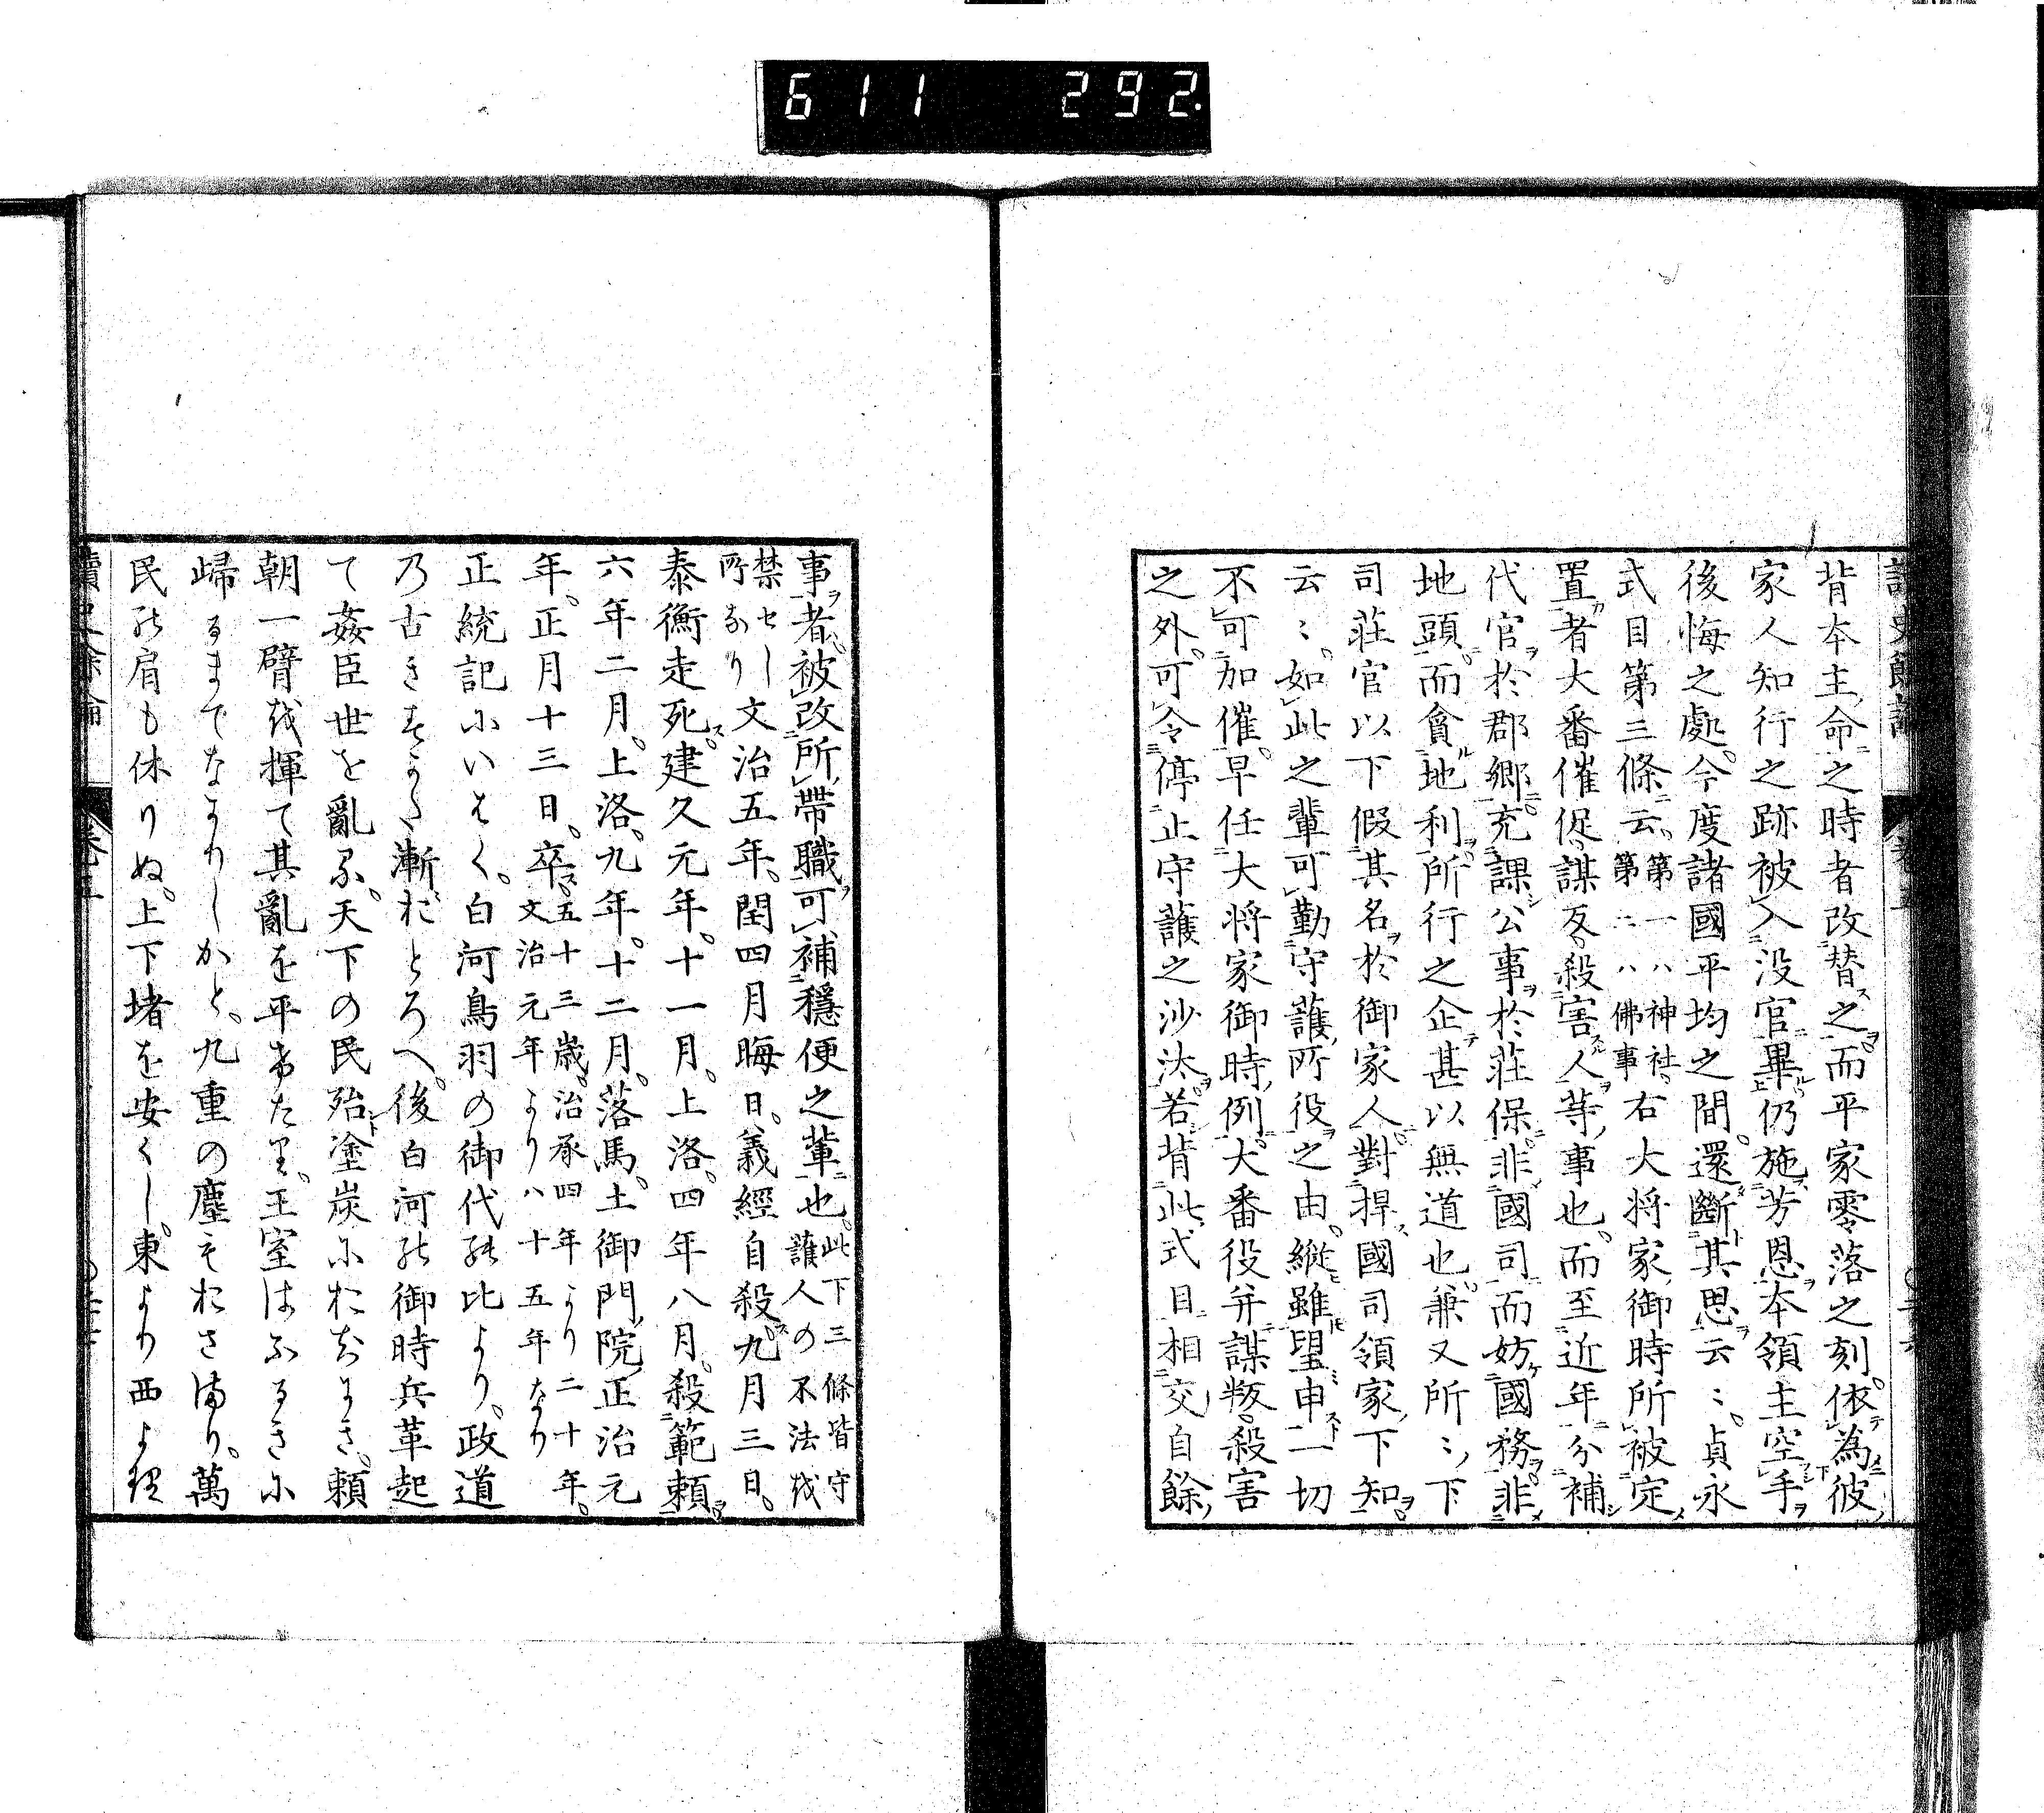 611 292.
讀史餘論 卷五
背本主命之時者改替之而平家零落之刻。依為彼
家人知行之跡被入没官畢仍施芳恩本領主空手
後悔之處。今度諸國平均之間。還斷其思云〻。貞永
式目第三條云、第一ハ神社、第二ハ佛事右大将家御時所被定
置者大番催促、謀反、殺害人等事也、而至近年分補
代官於郡郷。充課公事於莊保非國司而妨國務。非
地頭而貪地利。所行之企甚以無道也。兼又所〻下
司莊官以下假其名於御家人。對捍國司領家下知。
云〻。如此之輩可勤守護所役之由。縱雖望申一切
不可加催。早任大将家御時例。大番役并謀叛。殺害
之外。可令停止守護之沙汰。若背此式目相交自餘
事者。被改所帶職可補穩便之輩也。此下三條皆守護人の不法を
禁せし所なり文治五年。閏四月晦日。義經自殺。九月三日。
泰衡走死。建久元年。十一月。上洛。四年八月。殺範頼
六年二月。上洛。九年。十二月。落馬。土御門院正治元
年。正月十三日。卒。五十三歳。治承四年より二十年。文治元年より八十五年なり
正統記にいはく。白河鳥羽の御代の比より。政道
乃古きすがた漸おとろへ。後白河の御時兵革起
て姦臣世を亂る。天下の民殆塗炭におちにき。頼
朝一臂を揮て其亂を平げたり。王室はふるきに
歸るまでなかりしかど。九重の塵もおさまり。萬
民の肩も休りぬ。上下堵を安くし。東より西より
讀史餘論 卷五